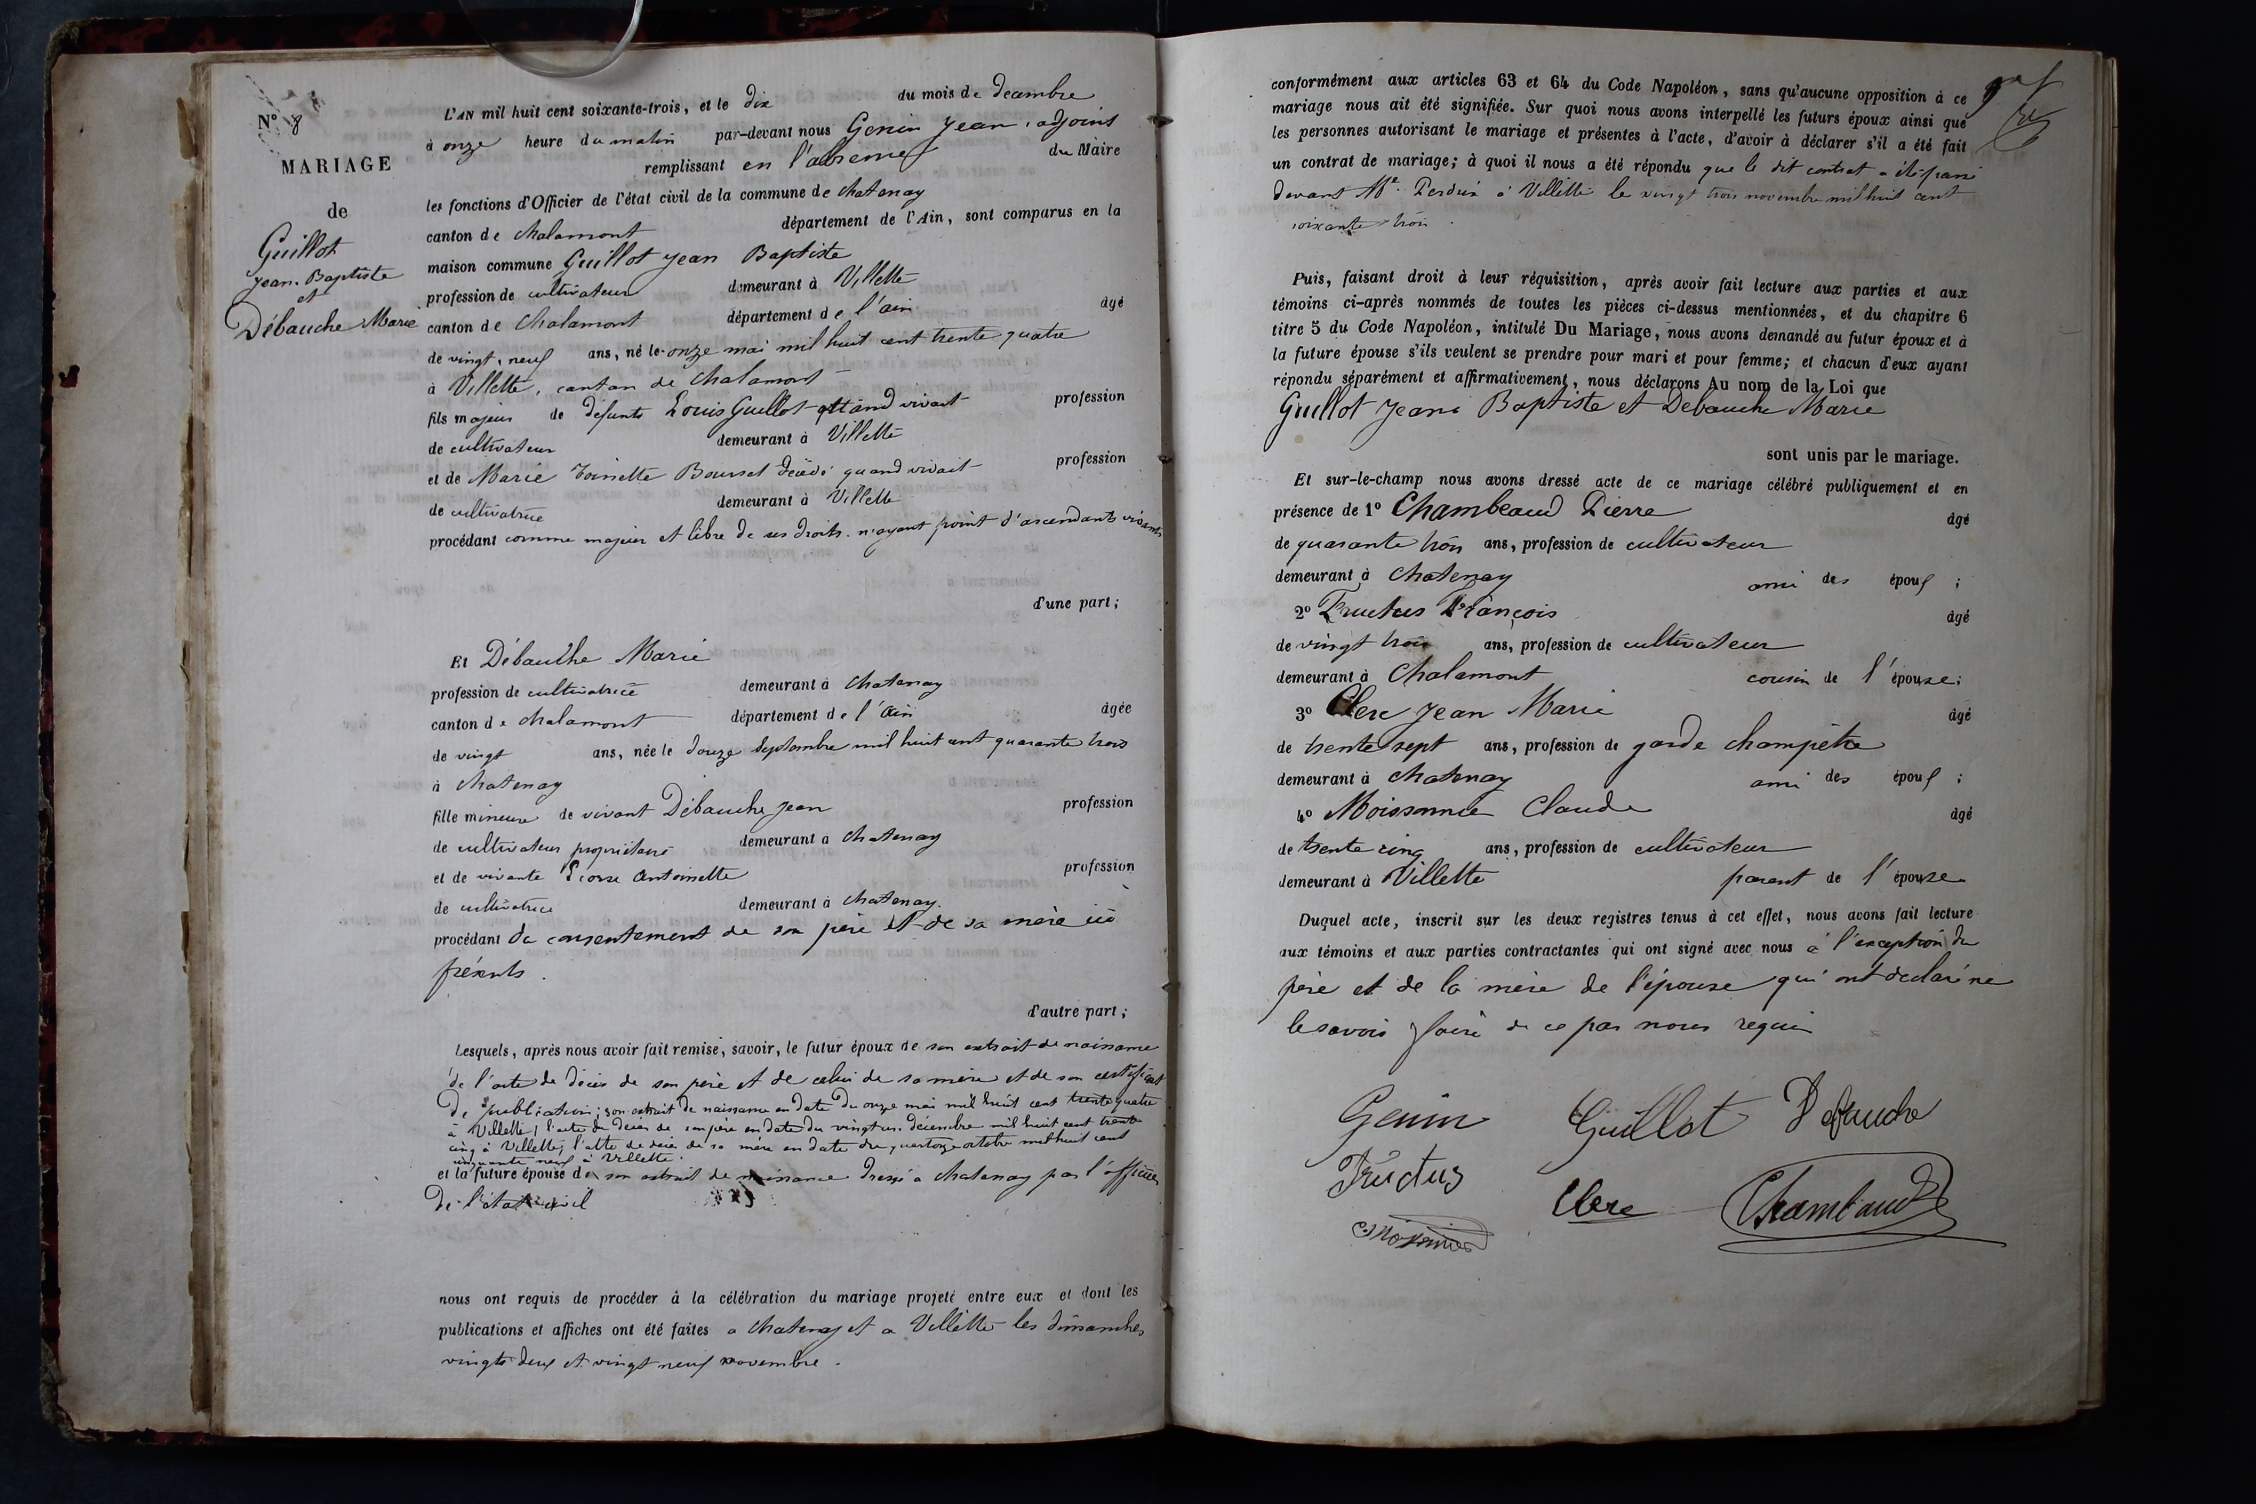 N° 8
MARIAGE
de
Guillot
Jean-Baptiste
et
Débauche Marie
L'AN mil huit cent soixante-trois, et le dix du mois de decembre
à onze heure du matin par-devant nous Genin Jean, adjoint
remplissant en l'absence du Maire
les fonctions d'Officier de l'état civil de la commune de chatenay
canton de chalamont département de l'Ain, sont comparus en la
maison commune Guillot Jean Baptiste
profession de cultivateur demeurant à Villette
canton de Chalamont département de l'ain âgé
de vingt, neuf ans, né le onze mai mil huit cent trente quatre
à Villette, canton de Chalamont
fils majeur de défunts Louis Guillot quand vivait profession
de cultivateur demeurant à Villette
et de Marie Toinette Boursat décédé quand vivait profession
de cultivatrice demeurant à Villette
procédant comme majeur et libre de ses droits. n'ayant point d'ascendants vivants
d'une part;
Et Débauche Marie
profession de cultivatrice demeurant à Chatenay
canton de chalamont département de l'Ain âgée
de vingt ans, née le douze Septembre mil huit cent quarante trois
à Chatenay
fille mineure de vivant Débauche Jean profession
de cultivateur propriétaire demeurant a Chatenay
et de vivante antoinette profession
de cultivatrice demeurant à Chatenay.
procédant du consentement de son père et de sa mère ici
présents.
d'autre part;
Lesquels, après nous avoir fait remise, savoir, le futur époux de son extrait de naissance
de l'acte de décès de son père et de celui de sa mère et de son certificat
de publication; son extrait de naissance en date du onze mai mil huit cent trente quatre
à Villette, l'acte de décès de son père en date du vingt un décembre mil huit cent trente
cinq à Villette, l'acte de décè de sa mère en date du quatorze octobre mil huit cent
cinquante neuf à Villette.
et la future épouse de son extrait de naissance dressé a chatenay par l'officier
de l'état civil
nous ont requis de procéder à la célébration du mariage projeté entre eux et dont les
publications et affiches ont été faites a Chatenay et a Villette les dimanches
vingts deux et vingt neuf novembre.
conformément aux articles 63 et 64 du Code Napoléon, sans qu'aucune opposition à ce
mariage nous ait été signifiée. Sur quoi nous avons interpellé les futurs époux ainsi que
les personnes autorisant le mariage et présentes à l'acte, d'avoir à déclarer s'il a été fait
un contrat de mariage; à quoi il nous a été répondu que le dit contrat a été passé
devant Me. Perdrix à Villette le vingt trois novembre mil huit cent
soixante trois.
Puis, faisant droit à leur réquisition, après avoir fait lecture aux parties et aux
témoins ci-après nommés de toutes les pièces ci-dessus mentionnées, et du chapitre 6
titre 5 du Code Napoléon, intitulé Du Mariage, nous avons demandé au futur époux et à
la future épouse s'ils veulent se prendre pour mari et pour femme; et chacun d'eux ayant
répondu séparément et affirmativement, nous déclarons Au nom de la Loi que
Guillot Jean Baptiste et Debauche Marie
sont unis par le mariage.
Et sur-le-champ nous avons dressé acte de ce mariage célébré publiquement et en
présence de 1° Chambeaud Pierre âgé
de quarante trois ans, profession de cultivateur
demeurant à Chatenay ami des époux;
2° Fructus François âgé
de vingt trois ans, profession de cultivateur
demeurant à Chalamont cousin de l'épouse;
3° Clerc Jean Marie âgé
de trente sept ans, profession de garde champêtre
demeurant à Chatenay ami des époux;
4° Moissonnie Claude âgé
de trente cinq ans, profession de cultivateur
demeurant à Villette parent de l'épouse
Duquel acte, inscrit sur les deux registres tenus à cet effet, nous avons fait lecture
aux témoins et aux parties contractantes qui ont signé avec nous à l'exception du
père et de la mère de l'épouse qui ont declaré ne
le savoir faire de ce par nous requis
Genin Guillot Debauche
Fructus Clerc Chambaud